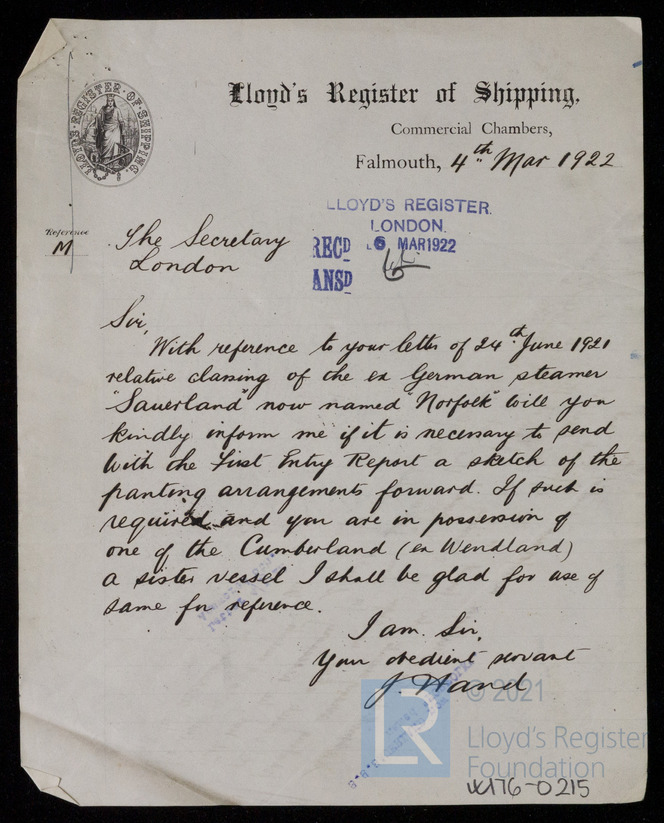 LLOYD'S REGISTER OF SHIPPING.
Lloyd's Register of Shipping,
Commercial Chambers,
Falmouth, 4th Mar 1922
LLOYD'S REGISTER.
LONDON.
RECD 6 MAR 1922
ANSD
Reference
M
The Secretary
London
Sir,
With reference to your letter of 24th June 1921
relative classing of the ex German steamer
"Sauerland" now named "Norfolk" will you
kindly inform me if it is necessary to send
with the First Entry Report a sketch of the
panting arrangements forward. If such is
required and you are in possession of
one of the Cumberland (ex Wendland)
a sister vessel I shall be glad for use of
same for reference.
I am. Sir,
Your obedient servant
J. Hand
LR
© 2021
Lloyd's Register
Foundation
W176-0215